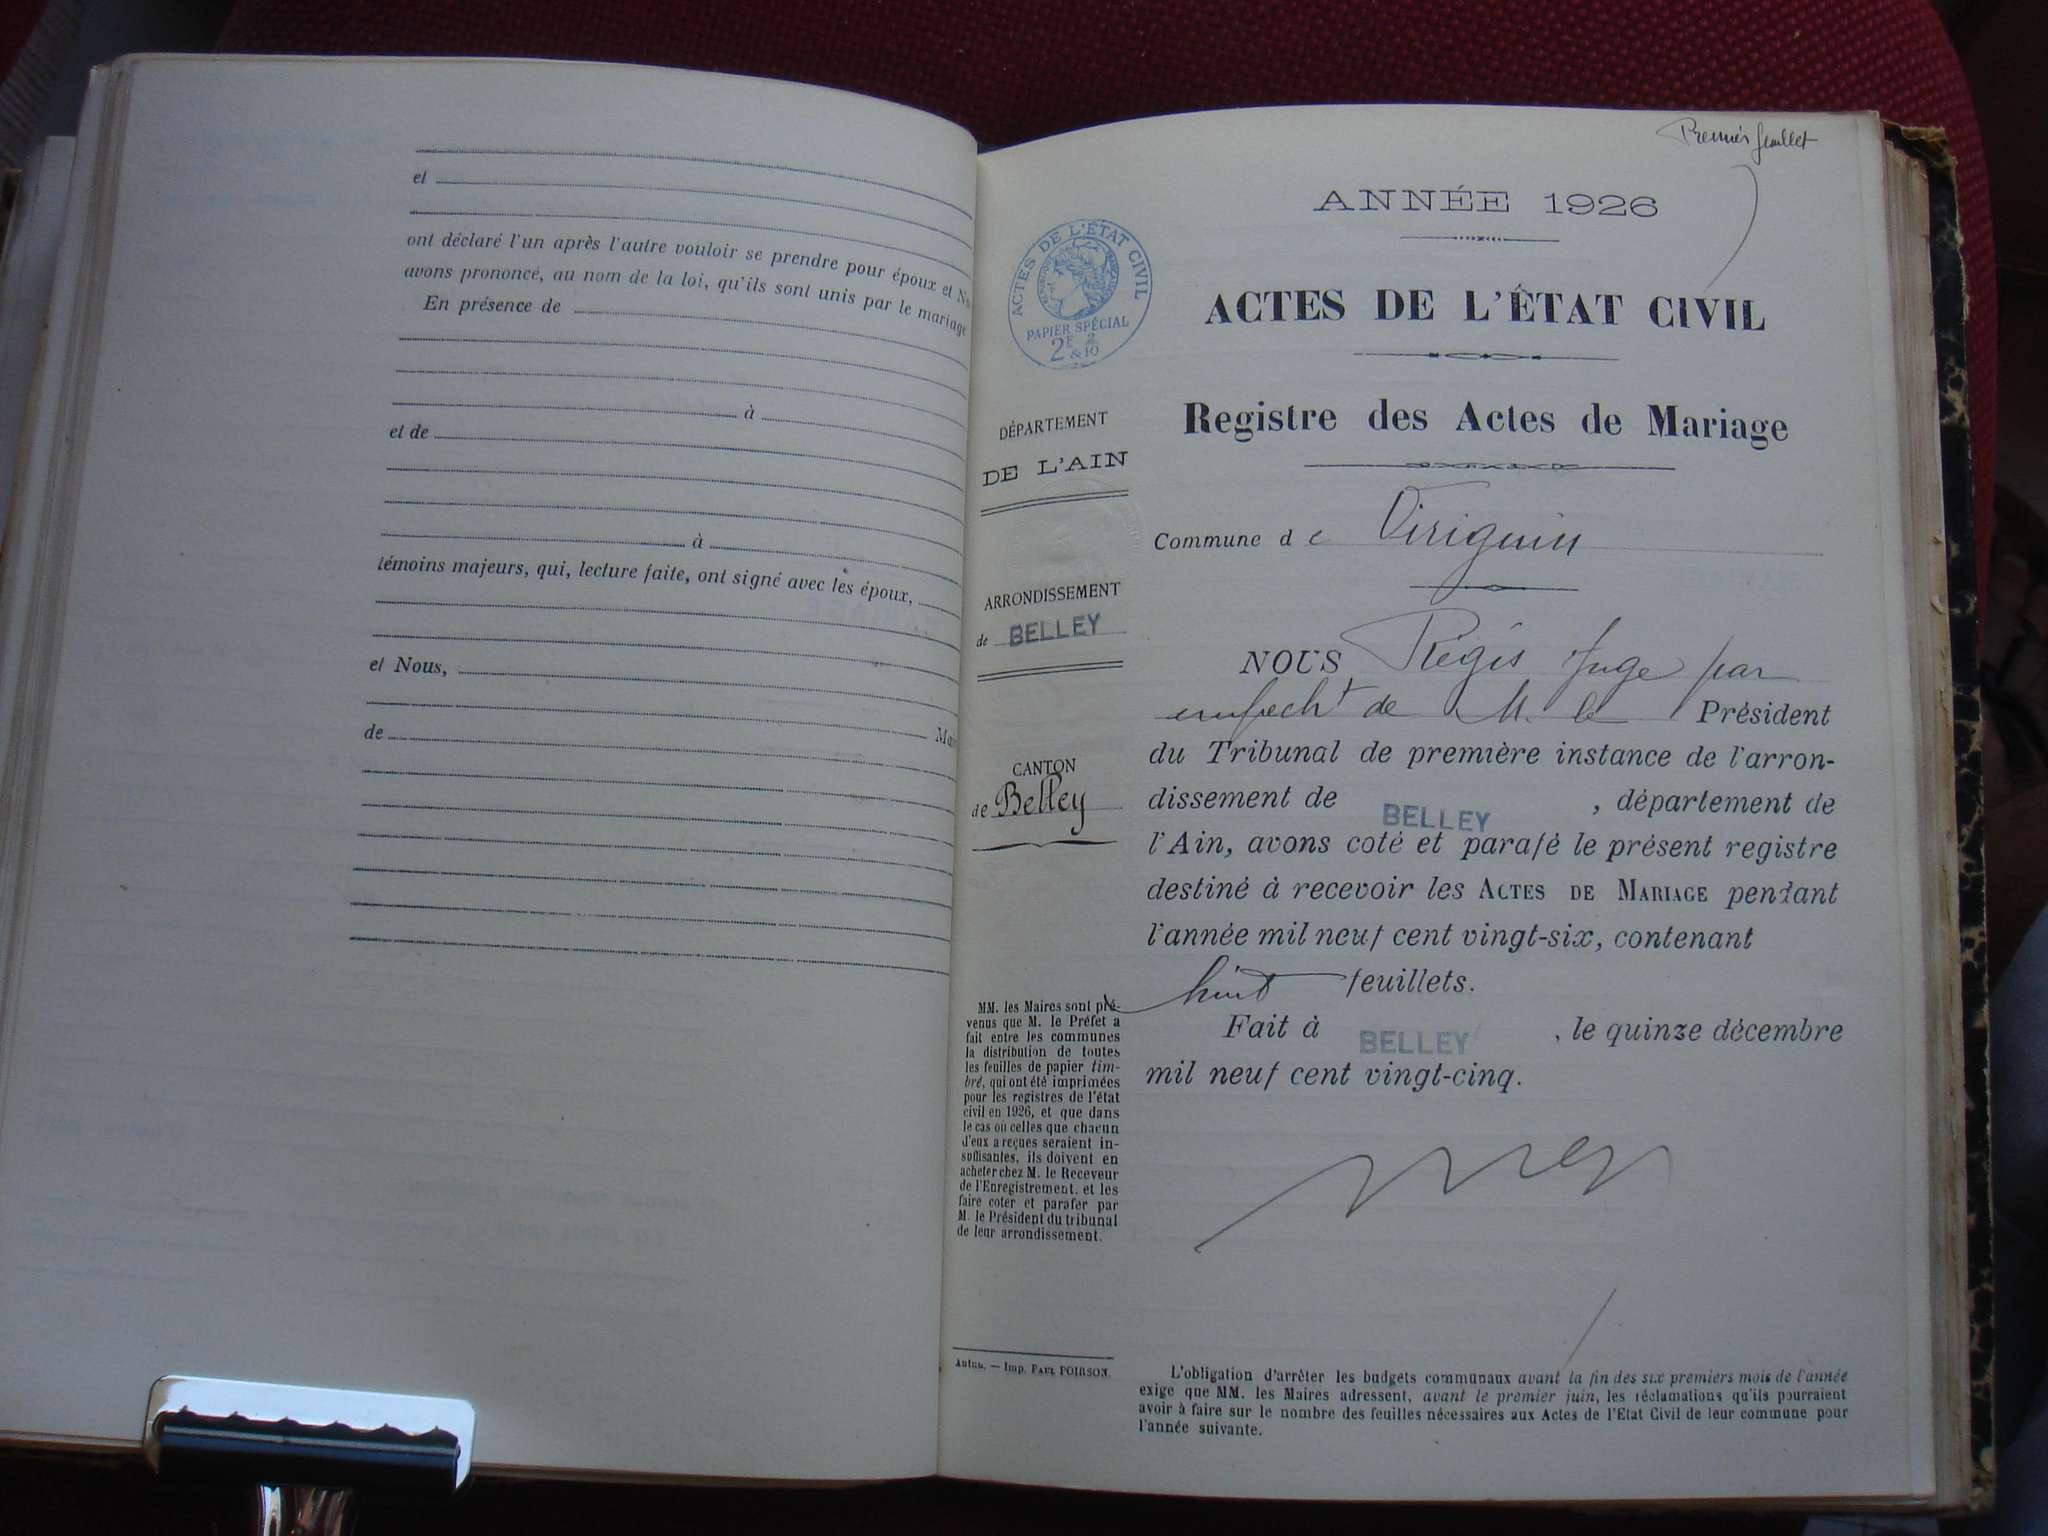 et
ont déclaré l'un après l'autre vouloir se prendre pour époux et N
avons prononcé, au nom de la loi, qu'ils sont unis par le mariage
En présence de
à
et de
à
témoins majeurs, qui, lecture faite, ont signé avec les époux,
et Nous,
Mai
de
Premier feuillet
ANNÉE 1926
ACTES DE L'ÉTAT CIVIL
RÉPUBLIQUE FRANÇAISE
PAPIER SPÉCIAL
2F 2
&10
ACTES DE L'ÉTAT CIVIL
Registre des Actes de Mariage
DÉPARTEMENT
DE L'AIN
ARRONDISSEMENT
de BELLEY
CANTON
de Belley
MM. les Maires sont pré-
venus que M. le Préfet a
fait entre les communes
la distribution de toutes
les feuilles de papier tim-
bré, qui ont été imprimées
pour les registres de l'état
civil en 1926, et que dans
le cas où celles que chacun
d'eux a reçues seraient in-
suffisantes, ils doivent en
acheter chez M. le Receveur
de l'Enregistrement, et les
faire coter et parafer par
M. le Président du tribunal
de leur arrondissement.
Autun. — Imp. PAUL POIRSON.
Commune de Virignin
NOUS Régis Juge par
empecht de M. le Président
du Tribunal de première instance de l'arron-
dissement de BELLEY, département de
l'Ain, avons coté et parafé le présent registre
destiné à recevoir les ACTES DE MARIAGE pendant
l'année mil neuf cent vingt-six, contenant
huit feuillets.
Fait à BELLEY, le quinze décembre
mil neuf cent vingt-cinq.
L'obligation d'arrêter les budgets communaux avant la fin des six premiers mois de l'année
exige que MM. les Maires adressent, avant le premier juin, les réclamations qu'ils pourraient
avoir à faire sur le nombre des feuilles nécessaires aux Actes de l'Etat Civil de leur commune pour
l'année suivante.